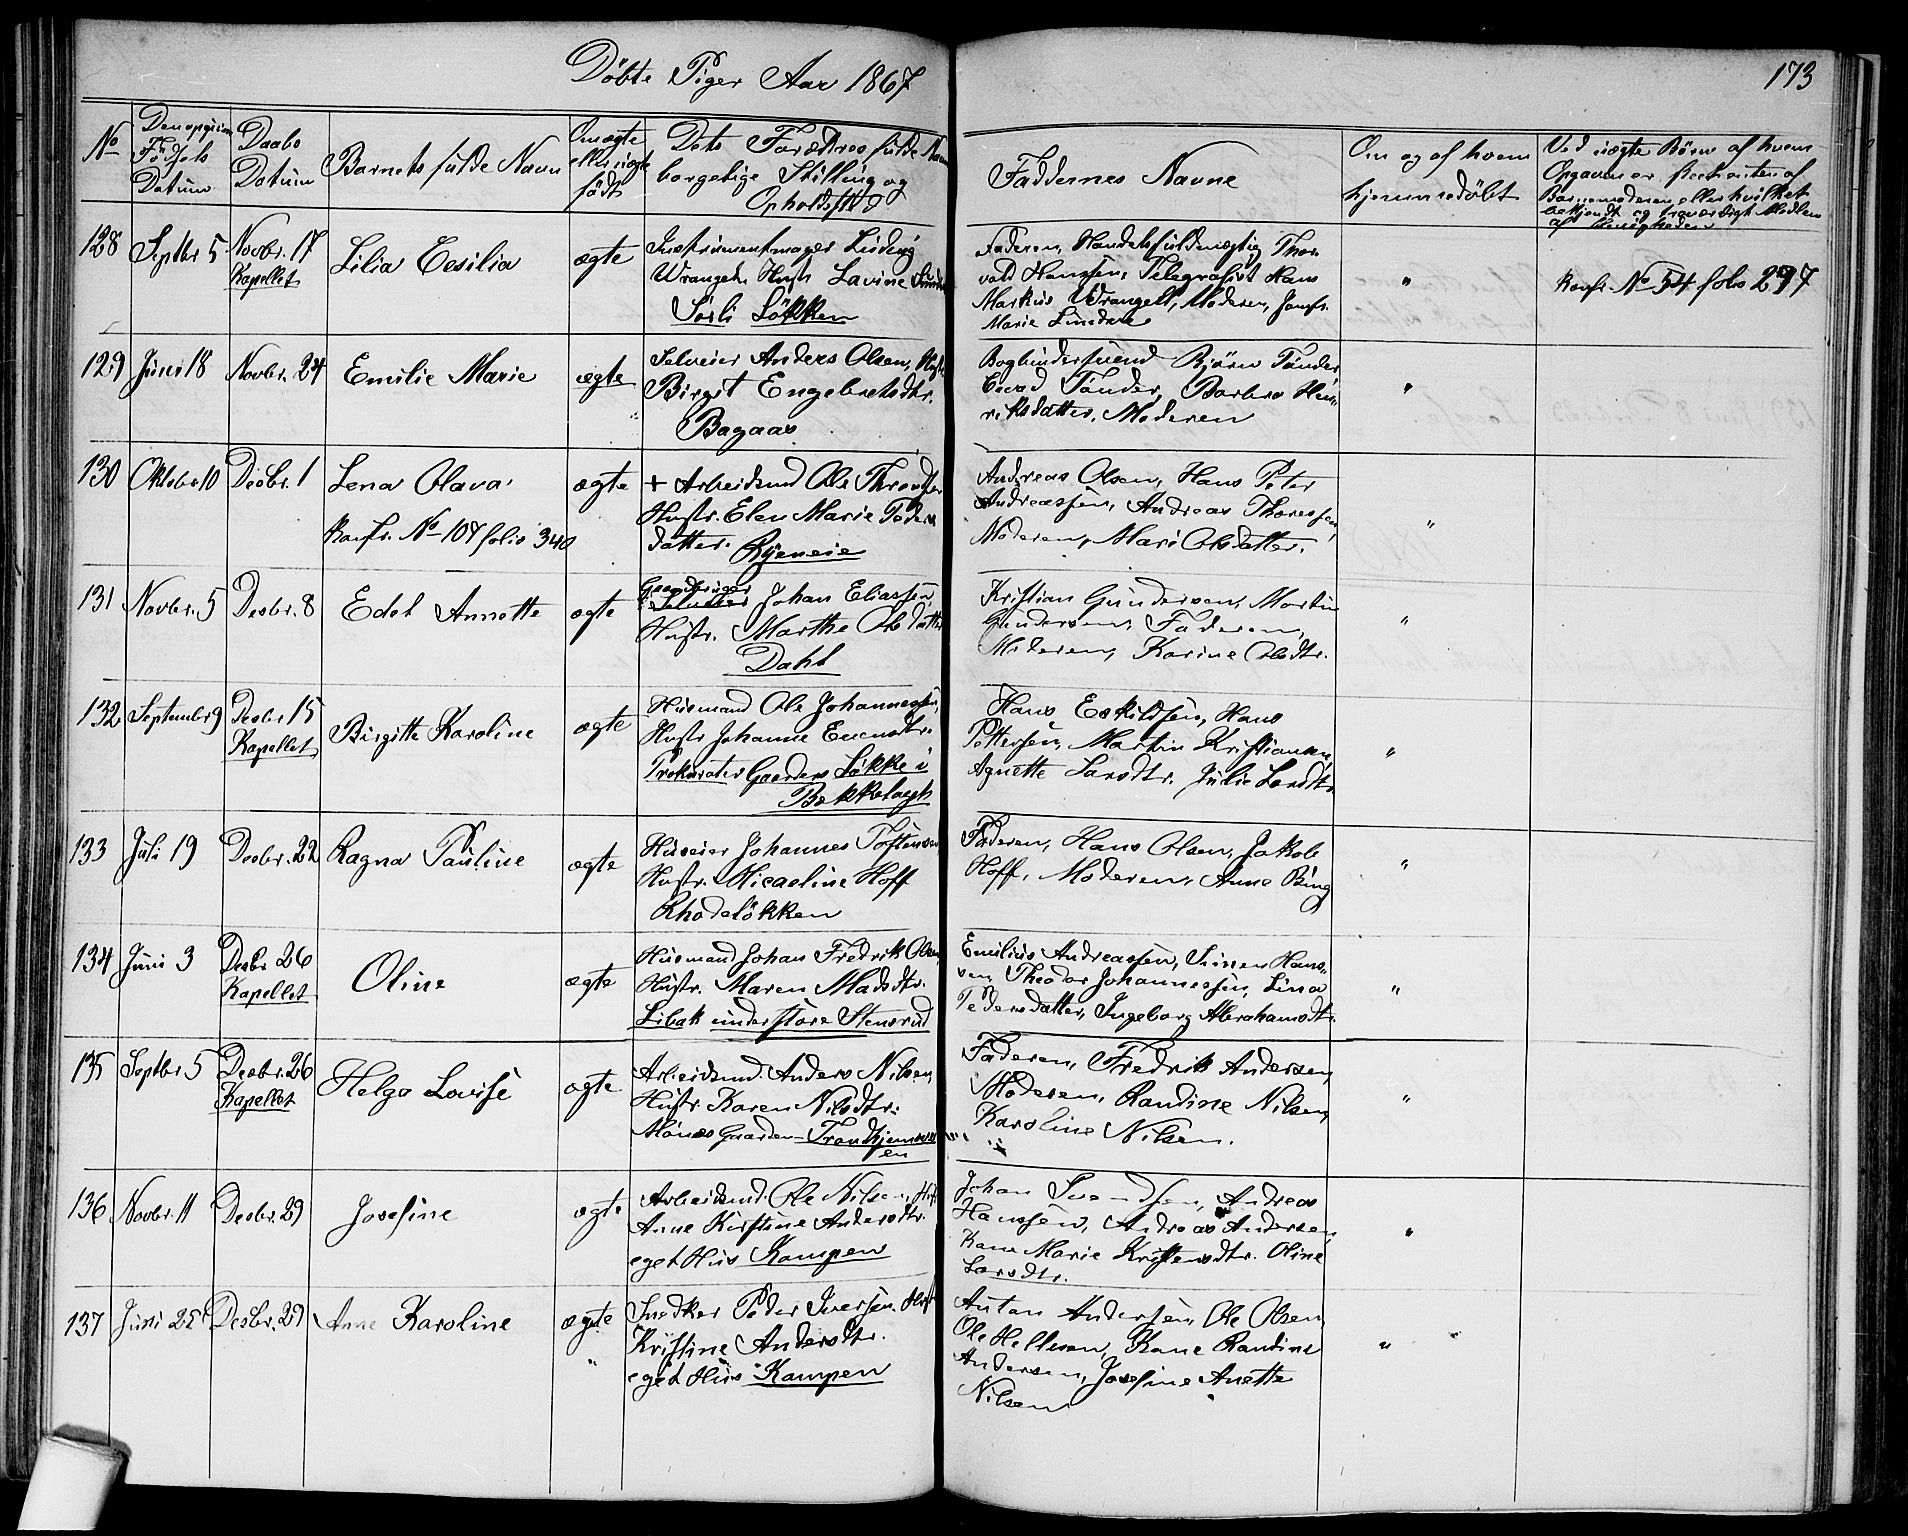 Döbte Piger Aar 1867
173
No
Den opgivne Födsels Datum
Daabs Datum
Barnets fulde Navn
Om ægte eller uægte födt
Dets Forældres fulde Navn borgerlige Stilling og Opholdssted
Faddernes Navne
Om og af hvem hjemmedöbt
Ved uægte Börn af hvem Opgaven er
Barnemoderen eller hvilket
bekjendt og troværdigt Medlem
af Menigheden
128 Septbr 5 Novbr. 17 Kapellet
Lilia Cesilia
ægte
Instrumentmager Ludvig
Wrangel Hustr Lavine
Sörli Lökken
Faderen, Handelsfuldmægtig Thor
vald Hanssen, Telegrafist Hans
Markus Wrangell, Moderen, Jomfr.
Marie
"
Konf. No 54 folio 297
129 Juni 18 Novbr. 24
Emilie Marie
ægte
Selveier Anders Olsen, Hustr
Birgit Engebretsdtr.
Bagaas
Bogbindersvend Björn Tönder
Tönder, Barbro Hen
riksdatter, Moderen
"
130 Oktober 10 Decbr. 1
Lena Olava
Konfr. No 107 folio 340
ægte
+ Arbeidsmd Ole Throndsen
Hustr. Elen Marie Peders
datter. Ryeneie
Andreas Olsen, Hans Peter
Andreassen, Andreas Thoressen
Moderen, Mari Olsdatter.
"
131 Novbr. 5 Desbr. 8
Edel Annette
ægte
Gaardbruger
Selveier Johan Eliassen,
Hustr. Marthe Olsdatter
Dahl
Kristian Gundersen, Martin
Gundersen, Faderen,
Moderen, Karine Olsdtr.
"
132 September 9 Desbr 15 Kapellet
Birgitte Karoline
ægte
Husmand Ole Johannessen,
Hustr Johanne Evensdtr.
Prokurator Gaarders Lökke i
Bækkelaget
Hans Eskildsen, Hans
Pettersen, Martin Kristiansen,
Agnette Larsdtr. Julie Larsdtr.
"
133 Juli 19 Desbr. 22
Ragna Pauline
ægte
Huseier Johannes Toftensen
Hustr. Micaeline Hoff
Rhodelökken
Faderen, Hans Olsen, Jakob
Hoff, Moderen, Anne Bing
"
134 Juni 3 Desbr 26 Kapellet
Oline
ægte
Husmand Johan Fredrik Olsen
Hustr. Maren Madsdtr.
Libak under store Stensrud
Emilius Andreassen, Simen Hans
sen, Theodor Johannessen, Lina
Pedersdatter, Ingeborg Abrahamsdtr.
"
135 Septbr 5 Desbr. 26 Kapellet
Helga Lovise
ægte
Arbeidsmd. Anders Nilsen,
Hustr Karen Nilsdtr.
Mönes Gaarden Trondhjemsvei
en
Faderen, Fredrik Andersen,
Moderen, Randine Nilsen,
Karoline Nilsen.
"
136 Novbr. 11 Desbr. 29
Josefine
ægte
Arbeidsmd. Ole Nilsen, Hst.
Anne Kirstine Andersdtr.
eget Hus Kampen
Johan Svendsen, Andreas
Hanssen, Andreas Andersen,
Kone Marie Kristensdtr. Oline
Larsdtr.
"
137 Juni 25 Desbr. 29
Anne Karoline
ægte
"
Snedker Peder Iversen Hust
Kristine Andersdtr.
eget Hus Kampen
Anton Andersen, Ole Olsen
Ole Hellesen, Kone Randine
Andersen, Josefine Anette
Nilsen
"